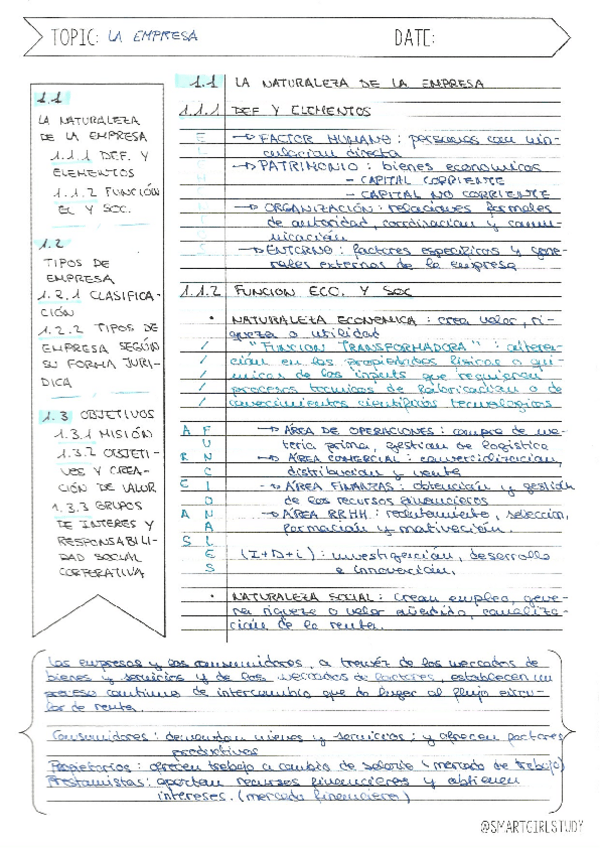 TOPIC: LA EMPRESA
DATE:
1.1
LA NATURALEZA
DE LA EMPRESA
1.1.1 DEF. Y
ELEMENTOS
1.1.2 FUNCIÓN
EC. Y SOC.
1.2
TIPOS DE
EMPRESA
1.2.1 CLASIFICA-
CIÓN
1.2.2 TIPOS DE
EMPRESA SEGÚN
SU FORMA JURÍ-
DICA
1.3 OBJETIVOS
1.3.1 MISIÓN
1.3.2 OBJETI-
VOS Y CREA-
CIÓN DE VALOR
1.3.3 GRUPOS
DE INTERES Y
RESPONSABILI-
DAD SOCIAL
CORPORATIVA
1.1 LA NATURALEZA DE LA EMPRESA
1.1.1 DEF Y ELEMENTOS
→ FACTOR HUMANO: personas con vin-
culación directa
→ PATRIMONIO: bienes economicos
- CAPITAL CORRIENTE
- CAPITAL NO CORRIENTE
→ ORGANIZACIÓN: relaciones formales
de autoridad, coordinacion y comu-
nicación
→ ENTORNO: factores especificos y gene-
rales externos de la empresa
1.1.2 FUNCION ECO. Y SOC
• NATURALEZA ECONOMICA: crea valor, ri-
queza o utilidad
"FUNCION TRANSFORMADORA": altera-
ción en las propiedades físicas o quí-
micas de los inputs que requieren
procesos tecnicos de fabricacion o de
conocimientos cientificos tecnologicos
AREAS
FUNCIONALES
→ ÁREA DE OPERACIONES: compra de ma-
teria prima, gestion de logistica
→ ÁREA COMERCIAL: comercialización,
distribucion y venta
- ÁREA FINANZAS: obtención y gestión
de los recursos financieros
→ ÁREA RRHH: reclutamiento, selección,
formación y motivación.
(I+D+i): investigación, desarrollo
e innovación.
• NATURALEZA SOCIAL: crean empleo, gene-
ra riqueza o valor añadido, canaliza-
cion de la renta.
Las empresas y los consumidores, a travéz de los mercados de
bienes y servicios y de los mercados de factores, establecen un
proceso continuo de intercambio que da lugar al flujo circu-
lar de renta.
Consumidores: demandan bienes y servicios; y ofrecen factores
productivos
ofrecen trabajo a cambio de salario (mercado de trabajo)
Prestamistas: aportan recursos financieros y obtienen
intereses. (mercado financiero)
@SMARTGIRLSTUDY